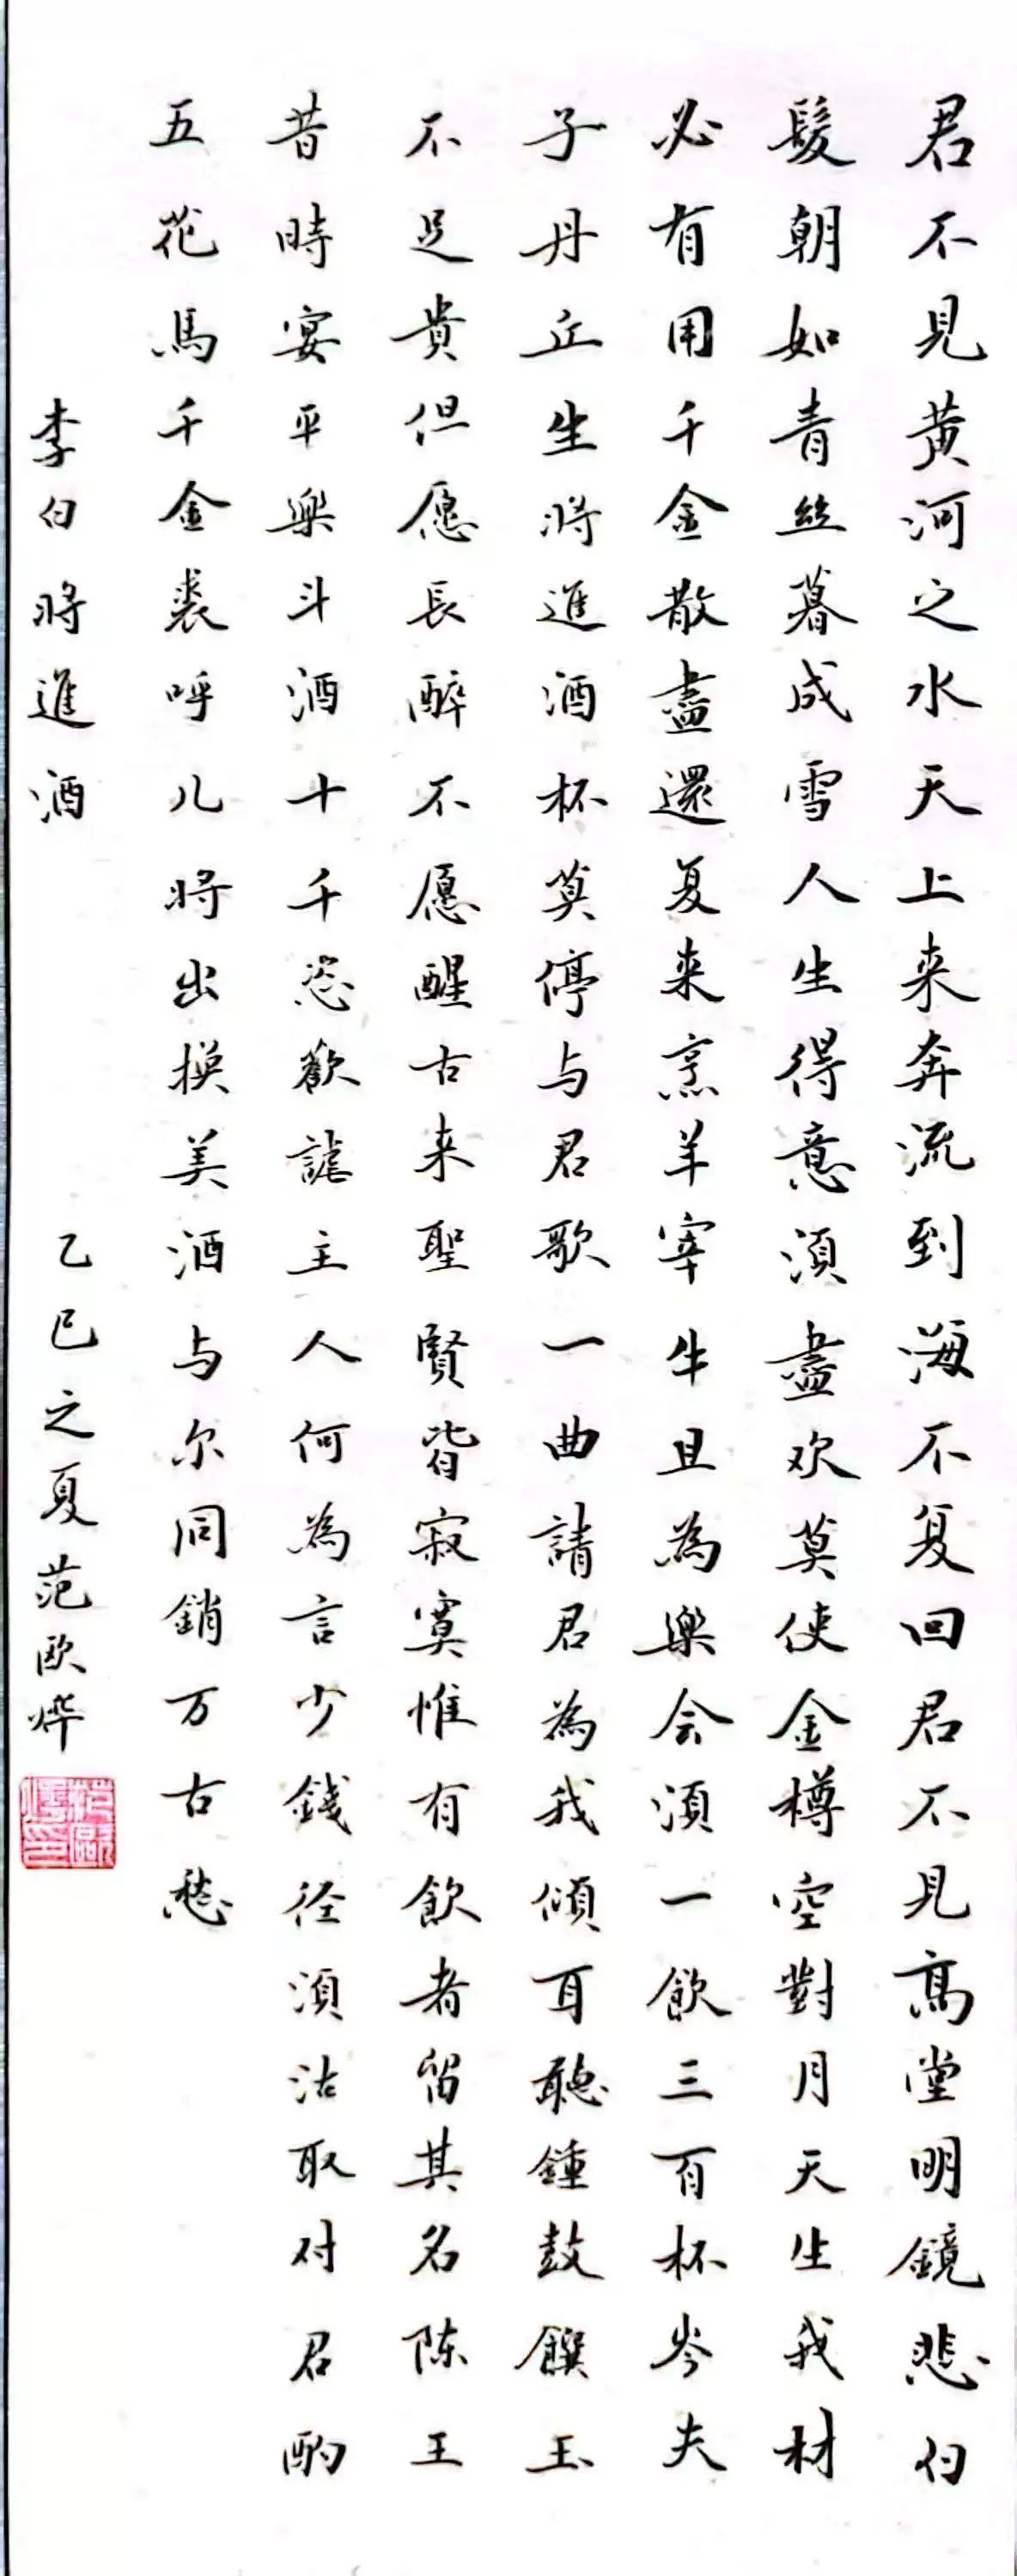 君不見黃河之水天上来奔流到海不复回君不見高堂明鏡悲白
髮朝如青絲暮成雪人生得意須盡欢莫使金樽空對月天生我材
必有用千金散盡還复来烹羊宰牛且為樂会須一飲三百杯岑夫
子丹丘生將進酒杯莫停与君歌一曲請君為我傾耳聽鍾鼓饌玉
不足貴但愿長醉不愿醒古来聖賢皆寂寞惟有飲者留其名陈王
昔時宴平樂斗酒十千恣歡謔主人何為言少錢径須沽取对君酌
五花馬千金裘呼儿將出換美酒与尔同銷万古愁
李白將進酒
乙巳之夏范欧烨